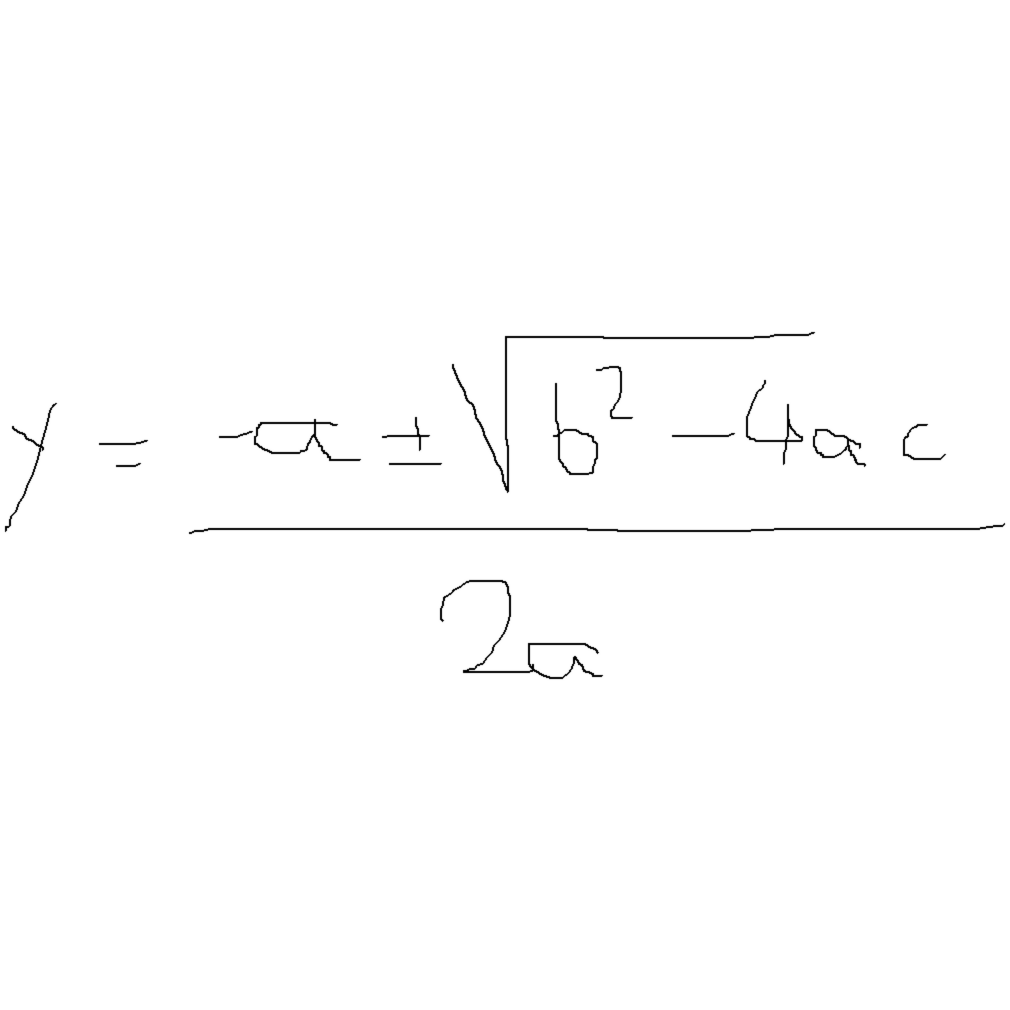 y = \frac{-a \pm \sqrt{b^2 - 4ac}}{2a}